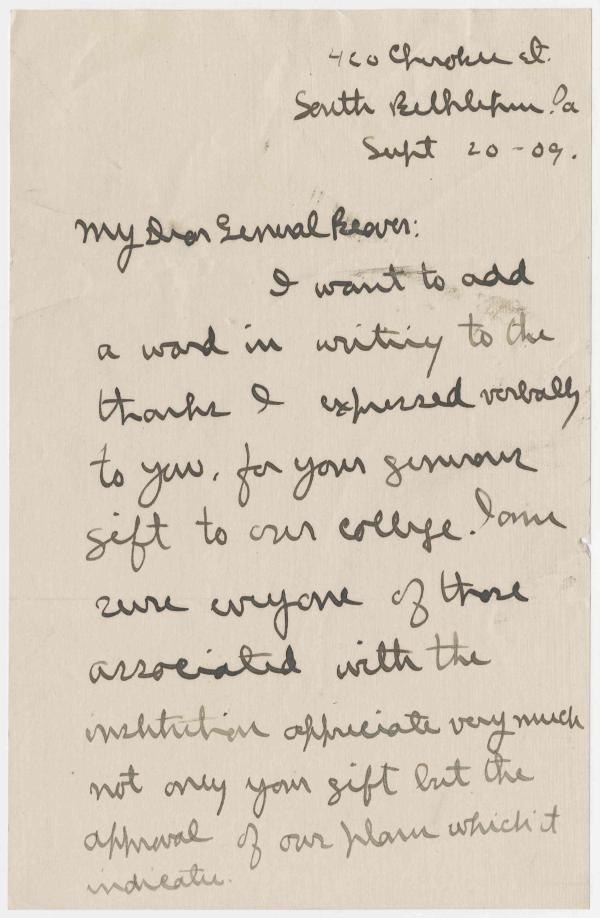 460 Cherokee St.
South Bethlehem. Pa
Sept 20 - 09.
My Dear General Beaver:
I want to add
a word in writing to the
thanks I expressed verbally
to you, for your generous
gift to our college. I am
sure everyone of those
associated with the
institution appreciate very much
not only your gift but the
approval of our plans which it
indicates.